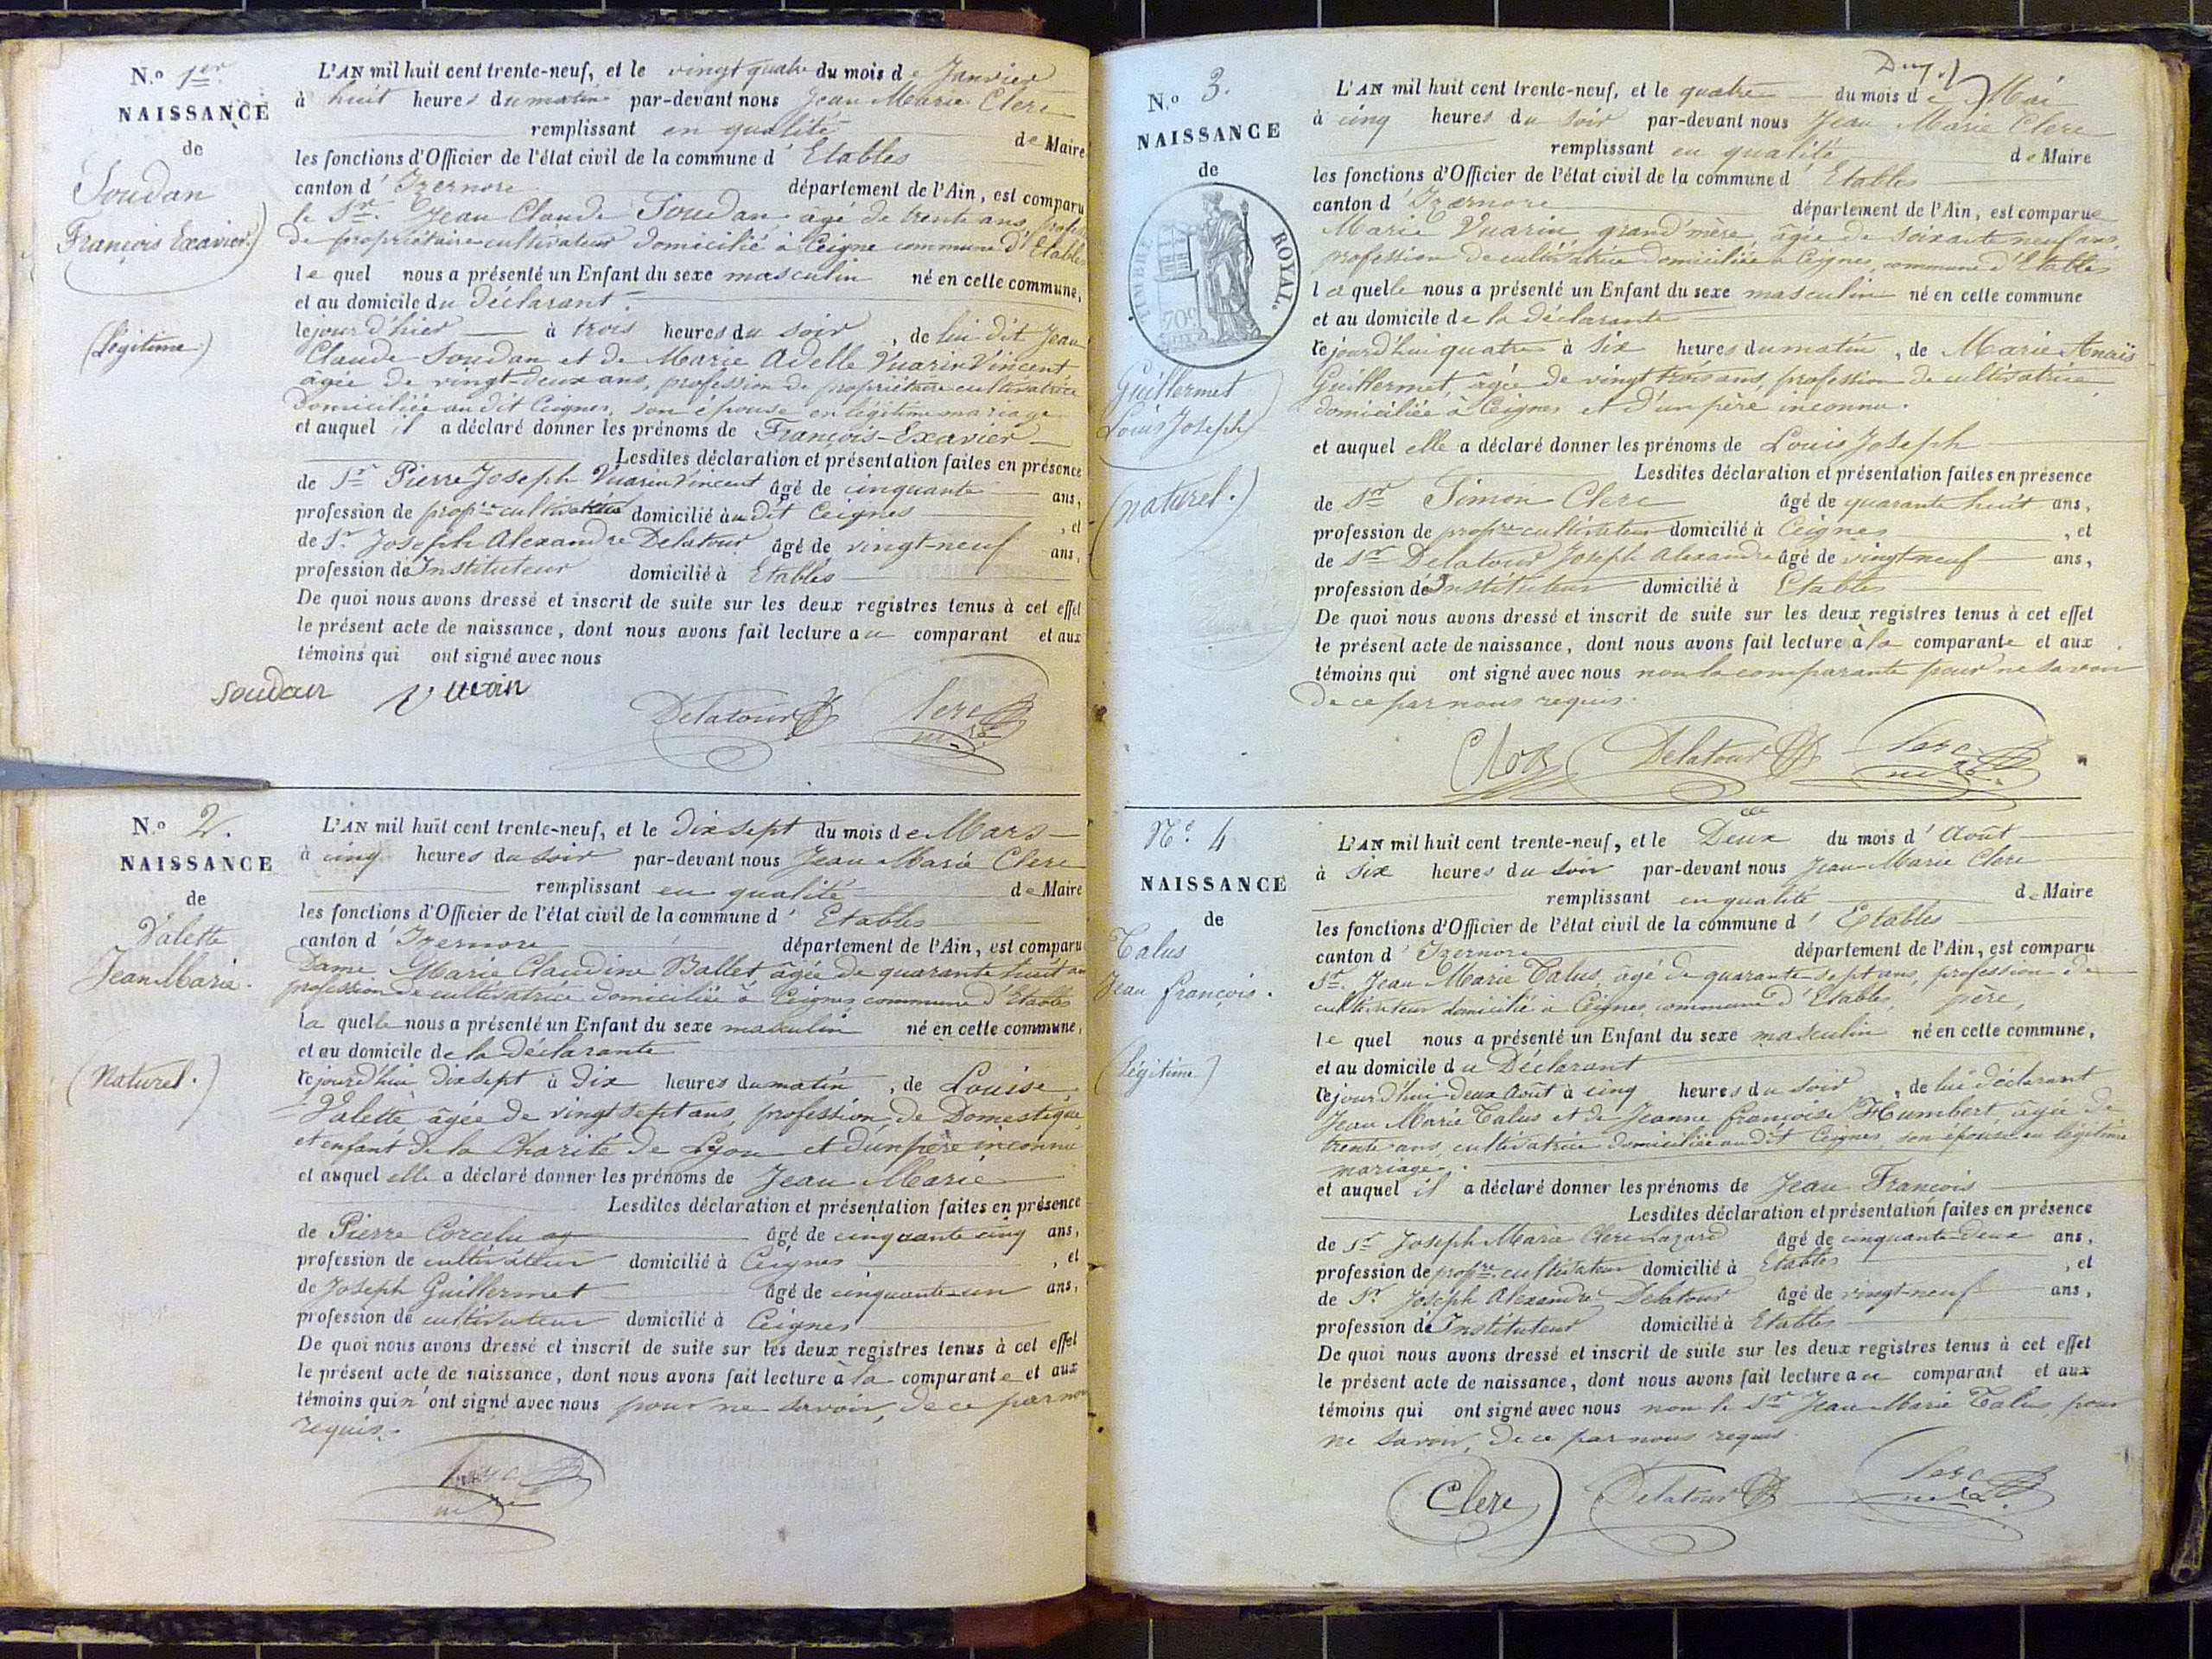 N.o 1er
NAISSANCE
de
Soudan
François Exavier.)
(Légitime.)
L'AN mil huit cent trente-neuf, et le vingt quatre du mois de Janvier
à huit heures du matin par-devant nous Jean Marie Clerc
remplissant en qualité de Maire
les fonctions d'Officier de l'état civil de la commune d' Etables
canton d' Izernore département de l'Ain, est comparu
le Sr. Jean Claude Soudan, âgé de trente ans, profes
de propriétaire cultivateur domicilié à Ceigne commune d'Etables
le quel nous a présenté un Enfant du sexe masculin né en cette commune,
et au domicile du déclarant.
le jour d'hier à trois heures du soir, de lui dit Jean
Claude Soudan et de Marie Adelle Vuarin Vincent
âgée de vingt-deux ans, profession de propriétaire cultivatrice
domiciliée au dit Ceignes, son épouse en légitime mariage
et auquel il a déclaré donner les prénoms de François-Exavier
Lesdites déclaration et présentation faites en présence
de Sr Pierre Joseph Vuarin Vincent âgé de cinquante ans,
profession de propre cultivateur domicilié audit Ceignes, et
de Sr. Joseph Alexandre Delatour âgé de vingt-neuf ans,
profession de Instituteur domicilié à Etables
De quoi nous avons dressé et inscrit de suite sur les deux registres tenus à cet effet
le présent acte de naissance, dont nous avons fait lecture au comparant et aux
témoins qui ont signé avec nous
soudan vuarin Delatour Clerc
N.o 2.
NAISSANCE
de
Valette
Jean Marie.
(Naturel.)
L'AN mil huit cent trente-neuf, et le dix sept du mois de Mars
à cinq heures du soir par-devant nous Jean Marie Clerc
remplissant en qualité de Maire
les fonctions d'Officier de l'état civil de la commune d' Etables
canton d' Izernore département de l'Ain, est comparu
Dame Marie Claudine Ballet âgée de quarante huit an
profession de cultivatrice domiciliée à Ceignes commune d'Etables
la quelle nous a présenté un Enfant du sexe masculin né en cette commune,
et au domicile de la déclarante
cejourd'hui dix sept à dix heures du matin, de Louise
Valette âgée de vingt sept ans, profession de Domestique
et enfant de la Charité de Lyon et d'un père inconnu
et auquel elle a déclaré donner les prénoms de Jean Marie
Lesdites déclaration et présentation faites en présence
de Pierre âgé de cinquante cinq ans,
profession de cultivateur domicilié à Ceignes, et
de Joseph Guillermet âgé de cinquante-un ans,
profession de cultivateur domicilié à Ceignes
De quoi nous avons dressé et inscrit de suite sur les deux registres tenus à cet effet
le présent acte de naissance, dont nous avons fait lecture à la comparante et aux
témoins qui n'ont signé avec nous pour ne savoir, de ce par nous
requis.
Clerc
N.o 3.
NAISSANCE
de
TIMBRE ROYAL.
70c
Guillermet
Louis Joseph
(naturel.)
L'AN mil huit cent trente-neuf, et le quatre du mois de Mai
à cinq heures du soir par-devant nous Jean Marie Clerc
remplissant en qualité de Maire
les fonctions d'Officier de l'état civil de la commune d' Etables
canton d' Izernore département de l'Ain, est comparue
Marie Vuarin grand'mère âgée de soixante neuf ans,
profession de cultivatrice domiciliée à Ceignes, commune d'Etables
la quelle nous a présenté un Enfant du sexe masculin né en cette commune
et au domicile de la déclarante
cejourd'hui quatre à six heures du matin, de Marie Anaïs
Guillermet, âgée de vingt trois ans, profession de cultivatrice
domiciliée à Ceignes et d'un père inconnu.
et auquel elle a déclaré donner les prénoms de Louis Joseph
Lesdites déclaration et présentation faites en présence
de Sr Simon Clerc âgé de quarante huit ans,
profession de propre cultivateur domicilié à Ceignes, et
de Sr Delatour Joseph Alexandre âgé de vingt-neuf ans,
profession de Instituteur domicilié à Etables
De quoi nous avons dressé et inscrit de suite sur les deux registres tenus à cet effet
le présent acte de naissance, dont nous avons fait lecture à la comparante et aux
témoins qui ont signé avec nous non la comparante pour ne savoir
de ce par nous requis.
Delatour Clerc
N.o 4
NAISSANCE
de
Talus
Jean françois.
(Légitime)
L'AN mil huit cent trente-neuf, et le Deux du mois d' Août
à six heures du soir par-devant nous Jean-Marie Clerc
remplissant en qualité de Maire
les fonctions d'Officier de l'état civil de la commune d' Etables
canton d' Izernore département de l'Ain, est comparu
Sr. Jean Marie Talus, âgé de quarante sept ans, profession de
cultivateur domicilié à Ceignes, commune d'Etables, père,
le quel nous a présenté un Enfant du sexe masculin né en cette commune,
et au domicile du Déclarant
cejourd'hui deux Août à cinq heures du soir, de lui déclarant
Jean Marie Talus et de Jeanne françoise Humbert, âgée de
trente ans, cultivatrice domiciliée audit Ceignes, son épouse en légitime
mariage.
et auquel il a déclaré donner les prénoms de Jean François
Lesdites déclaration et présentation faites en présence
de Sr Joseph Marie Clerc Lazard âgé de cinquante-deux ans,
profession de propre cultivateur domicilié à Etables, et
de Sr Joseph Alexandre Delatour âgé de vingt-neuf ans,
profession de Instituteur domicilié à Etables
De quoi nous avons dressé et inscrit de suite sur les deux registres tenus à cet effet
le présent acte de naissance, dont nous avons fait lecture au comparant et aux
témoins qui ont signé avec nous non le Sr Jean Marie Talus, pour
ne savoir, de ce par nous requis.
Clerc Delatour Clerc